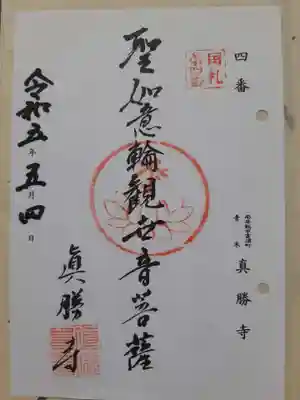 四番
真勝寺
聖如意輪観世音菩薩
眞勝寺
令和五年五月四日